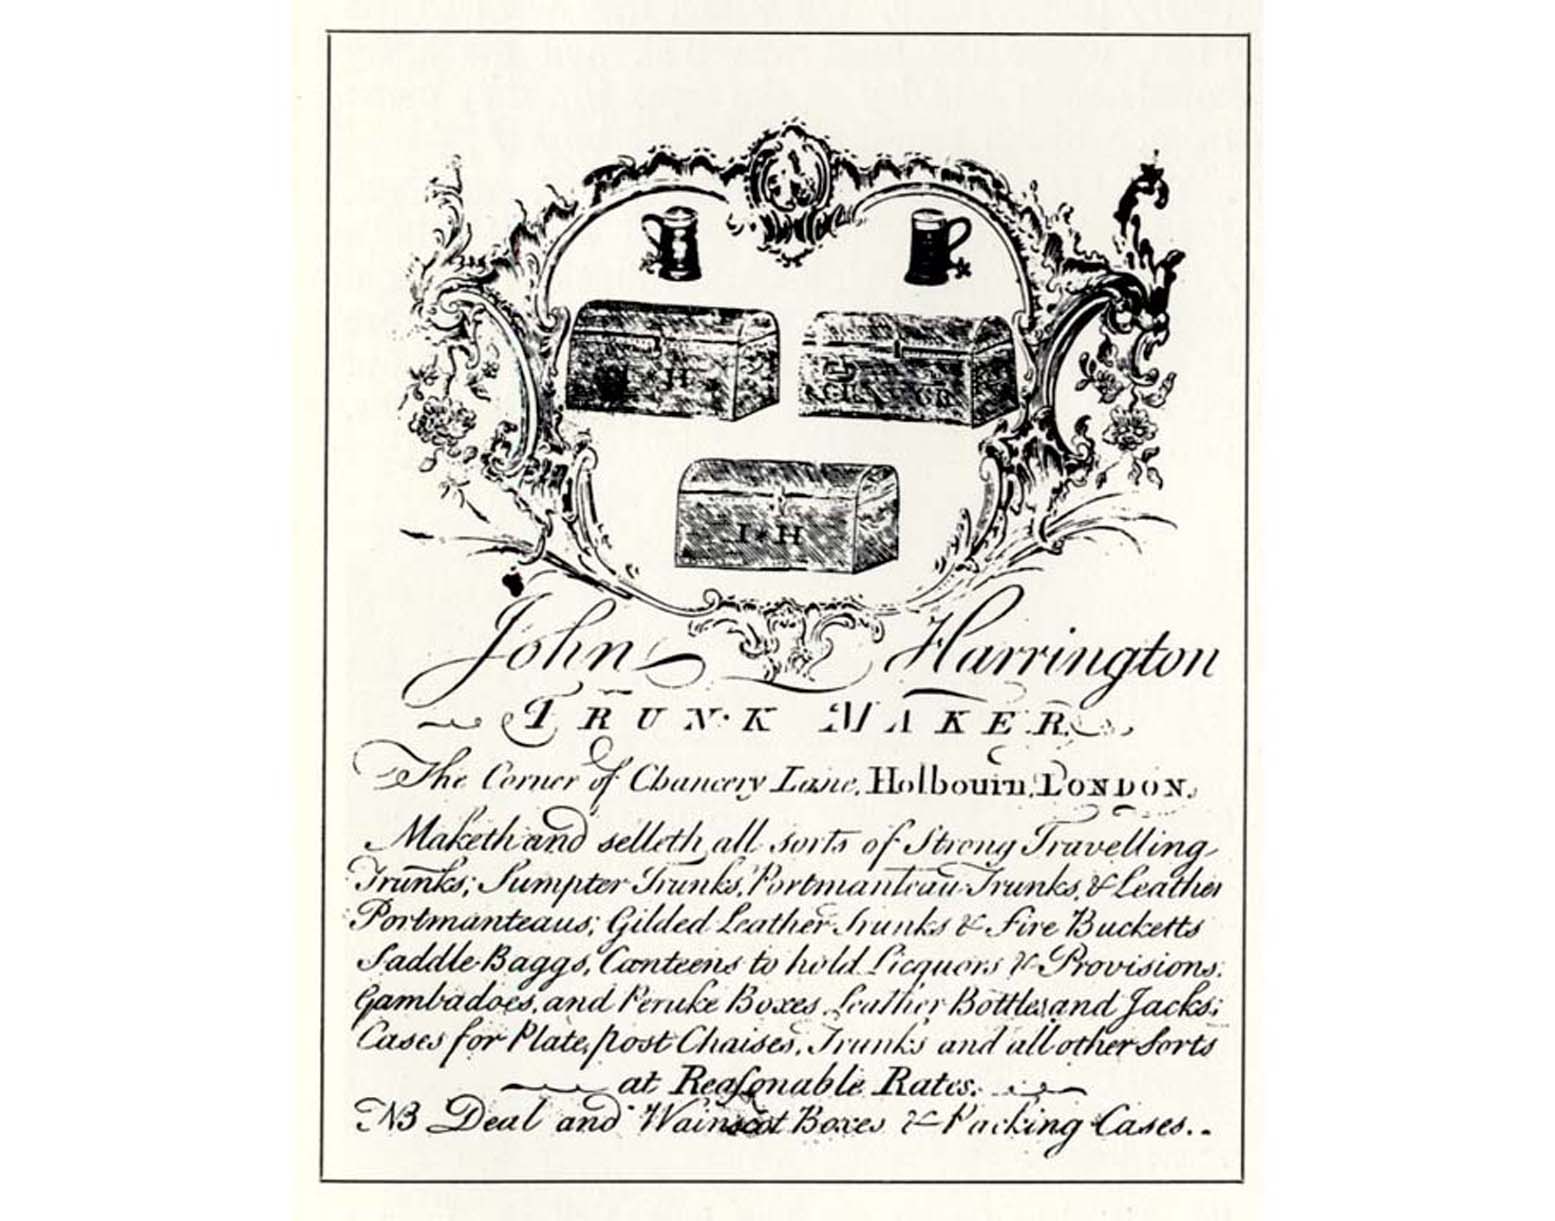 H
I * H
John Harrington
TRUNK MAKER
The Corner of Chancery Lane, Holbourn, LONDON.
Maketh and selleth all sorts of Strong Travelling
Trunks; Sumpter Trunks, Portmanteau Trunks, & Leather
Portmanteaus; Gilded Leather Trunks & Fire Bucketts
Saddle-Baggs, Canteens to hold Licquors & Provisions.
Gambadoes, and Peruke Boxes, Leather Bottles and Jacks;
Cases for Plate, post Chaises, Trunks and all other Sorts
at Reaſonable Rates.
NB Deal and Wainscot Boxes & Packing Cases..